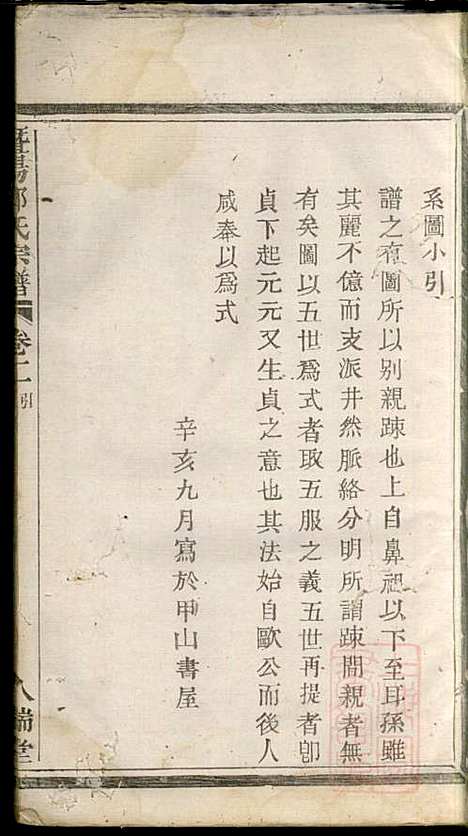 系圖小引
譜之有圖所以别親踈也上自鼻祖以下至耳孫雖
其麗不億而支派井然脈絡分明所謂踈間親者無
有矣圖以五世爲式者取五服之義五世再提者卽
貞下起元元又生貞之意也其法始自歐公而後人
咸奉以爲式
辛亥九月寫於甲山書屋
氏宗譜
卷二
引
八端堂